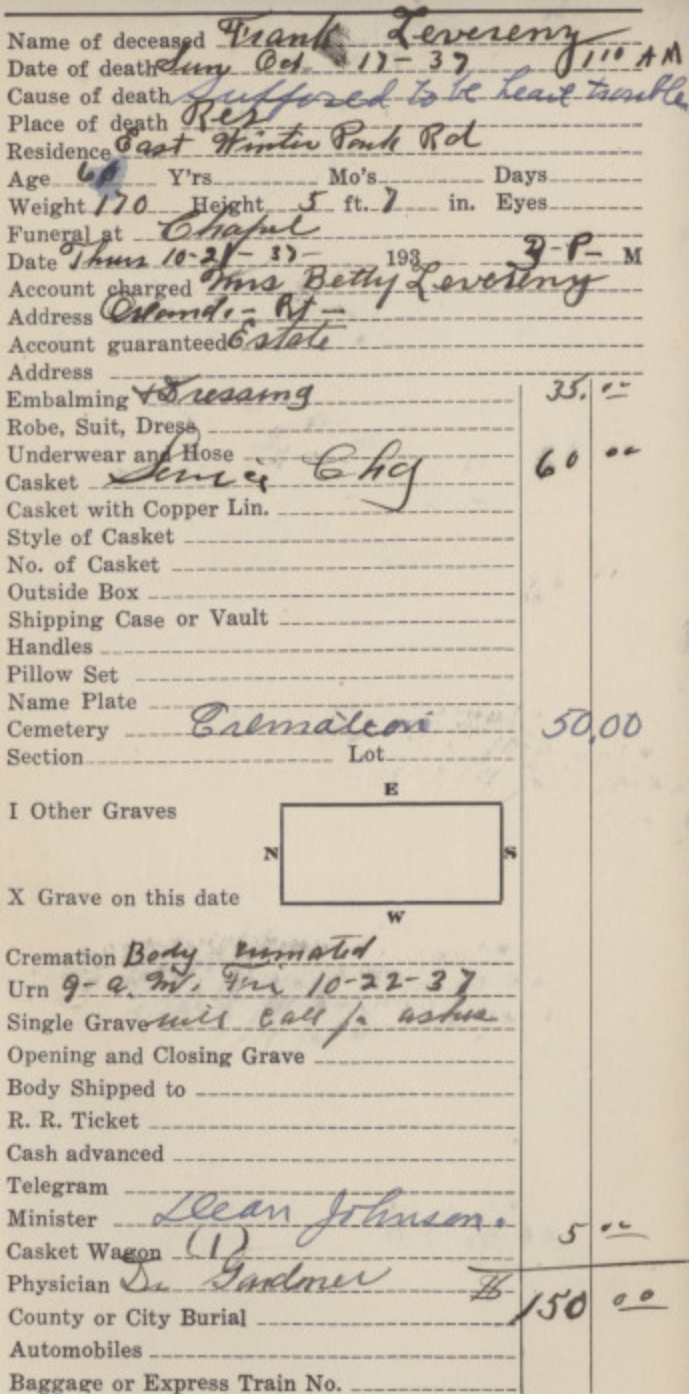 Name of deceased Frank Levereny
Date of death Sun Oct 17-37 1 10 AM
Cause of death Supposed to be heart trouble
Place of death Res
Residence East Winter Park Rd
Age 60 Y'rs Mo's Days
Weight 170 Height 5 ft. 7 in. Eyes
Funeral at Chapel
Date Thurs 10-21-37- 193 2-P- M
Account charged Mrs Betty Levereny
Address Orlando - Rt -
Account guaranteed Estate
Address
Embalming & Dressing 35.00
Robe, Suit, Dress
Underwear and Hose
Casket Service Chg 60 00
Casket with Copper Lin.
Style of Casket
No. of Casket
Outside Box
Shipping Case or Vault
Handles
Pillow Set
Name Plate
Cemetery Cremation 50,00
Section Lot
E
I Other Graves
N S
X Grave on this date
W
Cremation Body cremated
Urn 9-a.m. Fri 10-22-37
Single Grave will call for ashes
Opening and Closing Grave
Body Shipped to
R. R. Ticket
Cash advanced
Telegram
Minister Dean Johnson. 5 00
Casket Wagon (1)
Physician Dr Gardner $150 00
County or City Burial
Automobiles
Baggage or Express Train No.